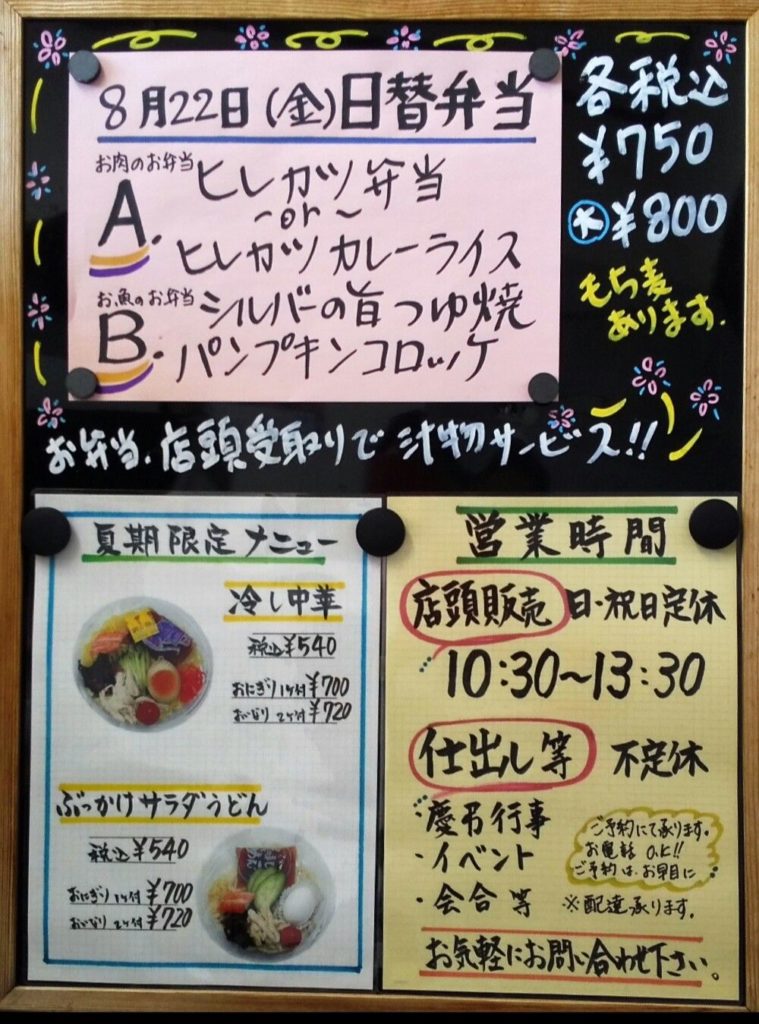 8月22日(金)日替弁当
お肉のお弁当
A.
ヒレカツ弁当
~or~
ヒレカツカレーライス
お魚のお弁当
B.
シルバーの旨つゆ焼
パンプキンコロッケ
各税込
¥750
大 ¥800
もち麦
あります.
お弁当、店頭受取りで汁物サービス!!
夏期限定メニュー
冷し中華
税込¥540
おにぎり1ケ付¥700
おいなり2ケ付¥720
ぶっかけサラダうどん
税込¥540
おにぎり1ケ付¥700
おいなり2ケ付¥720
営業時間
店頭販売 日・祝日定休
10:30~13:30
仕出し等 不定休
・慶弔行事
・イベント
・会合等
ご予約にて承ります。
お電話OK!!
ご予約は、お早目に
※配達承ります。
お気軽にお問い合わせ下さい。